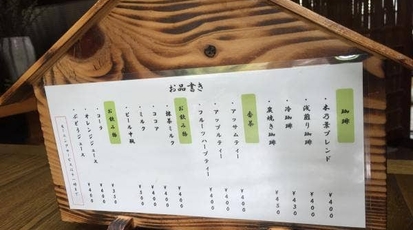 お品書き
珈琲
・木乃景ブレンド ￥400
・浅煎り珈琲 ￥400
・冷珈琲 ￥430
・炭焼き珈琲 ￥450
香茶
・アッサムティー ￥400
・アップルティー ￥400
・フルーツハーブティー ￥400
お飲み物
・抹茶ミルク ￥400
・ココア ￥400
・ミルク ￥400
・ビール中瓶 ￥500
お飲み物
・コーラ ￥400
・オレンジジュース ￥400
ぶどうジュース ￥400